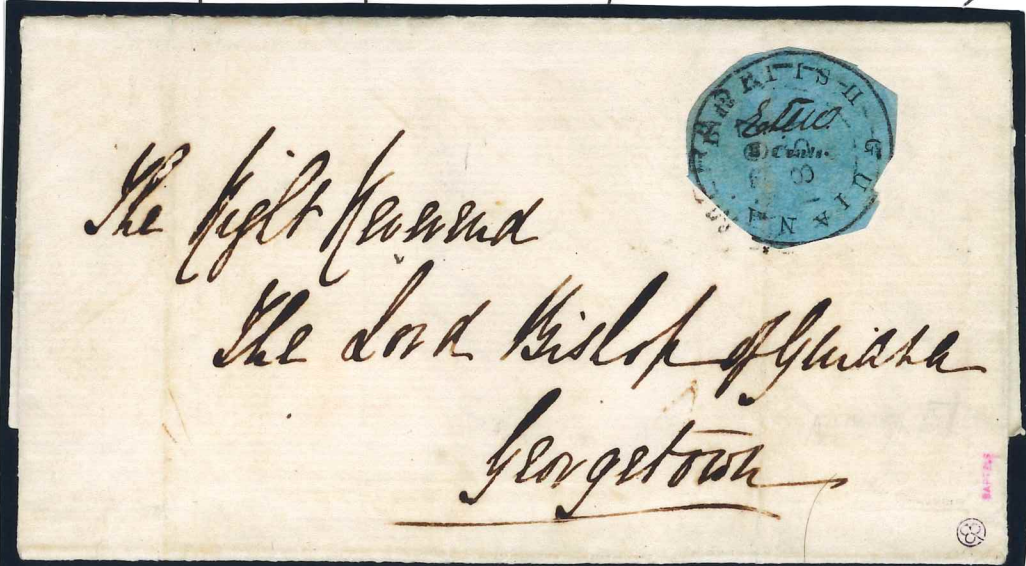 BRITISH
GUIANA
Cents.
The Right Reverend
The Lord Bishop of Guiana
Georgetown